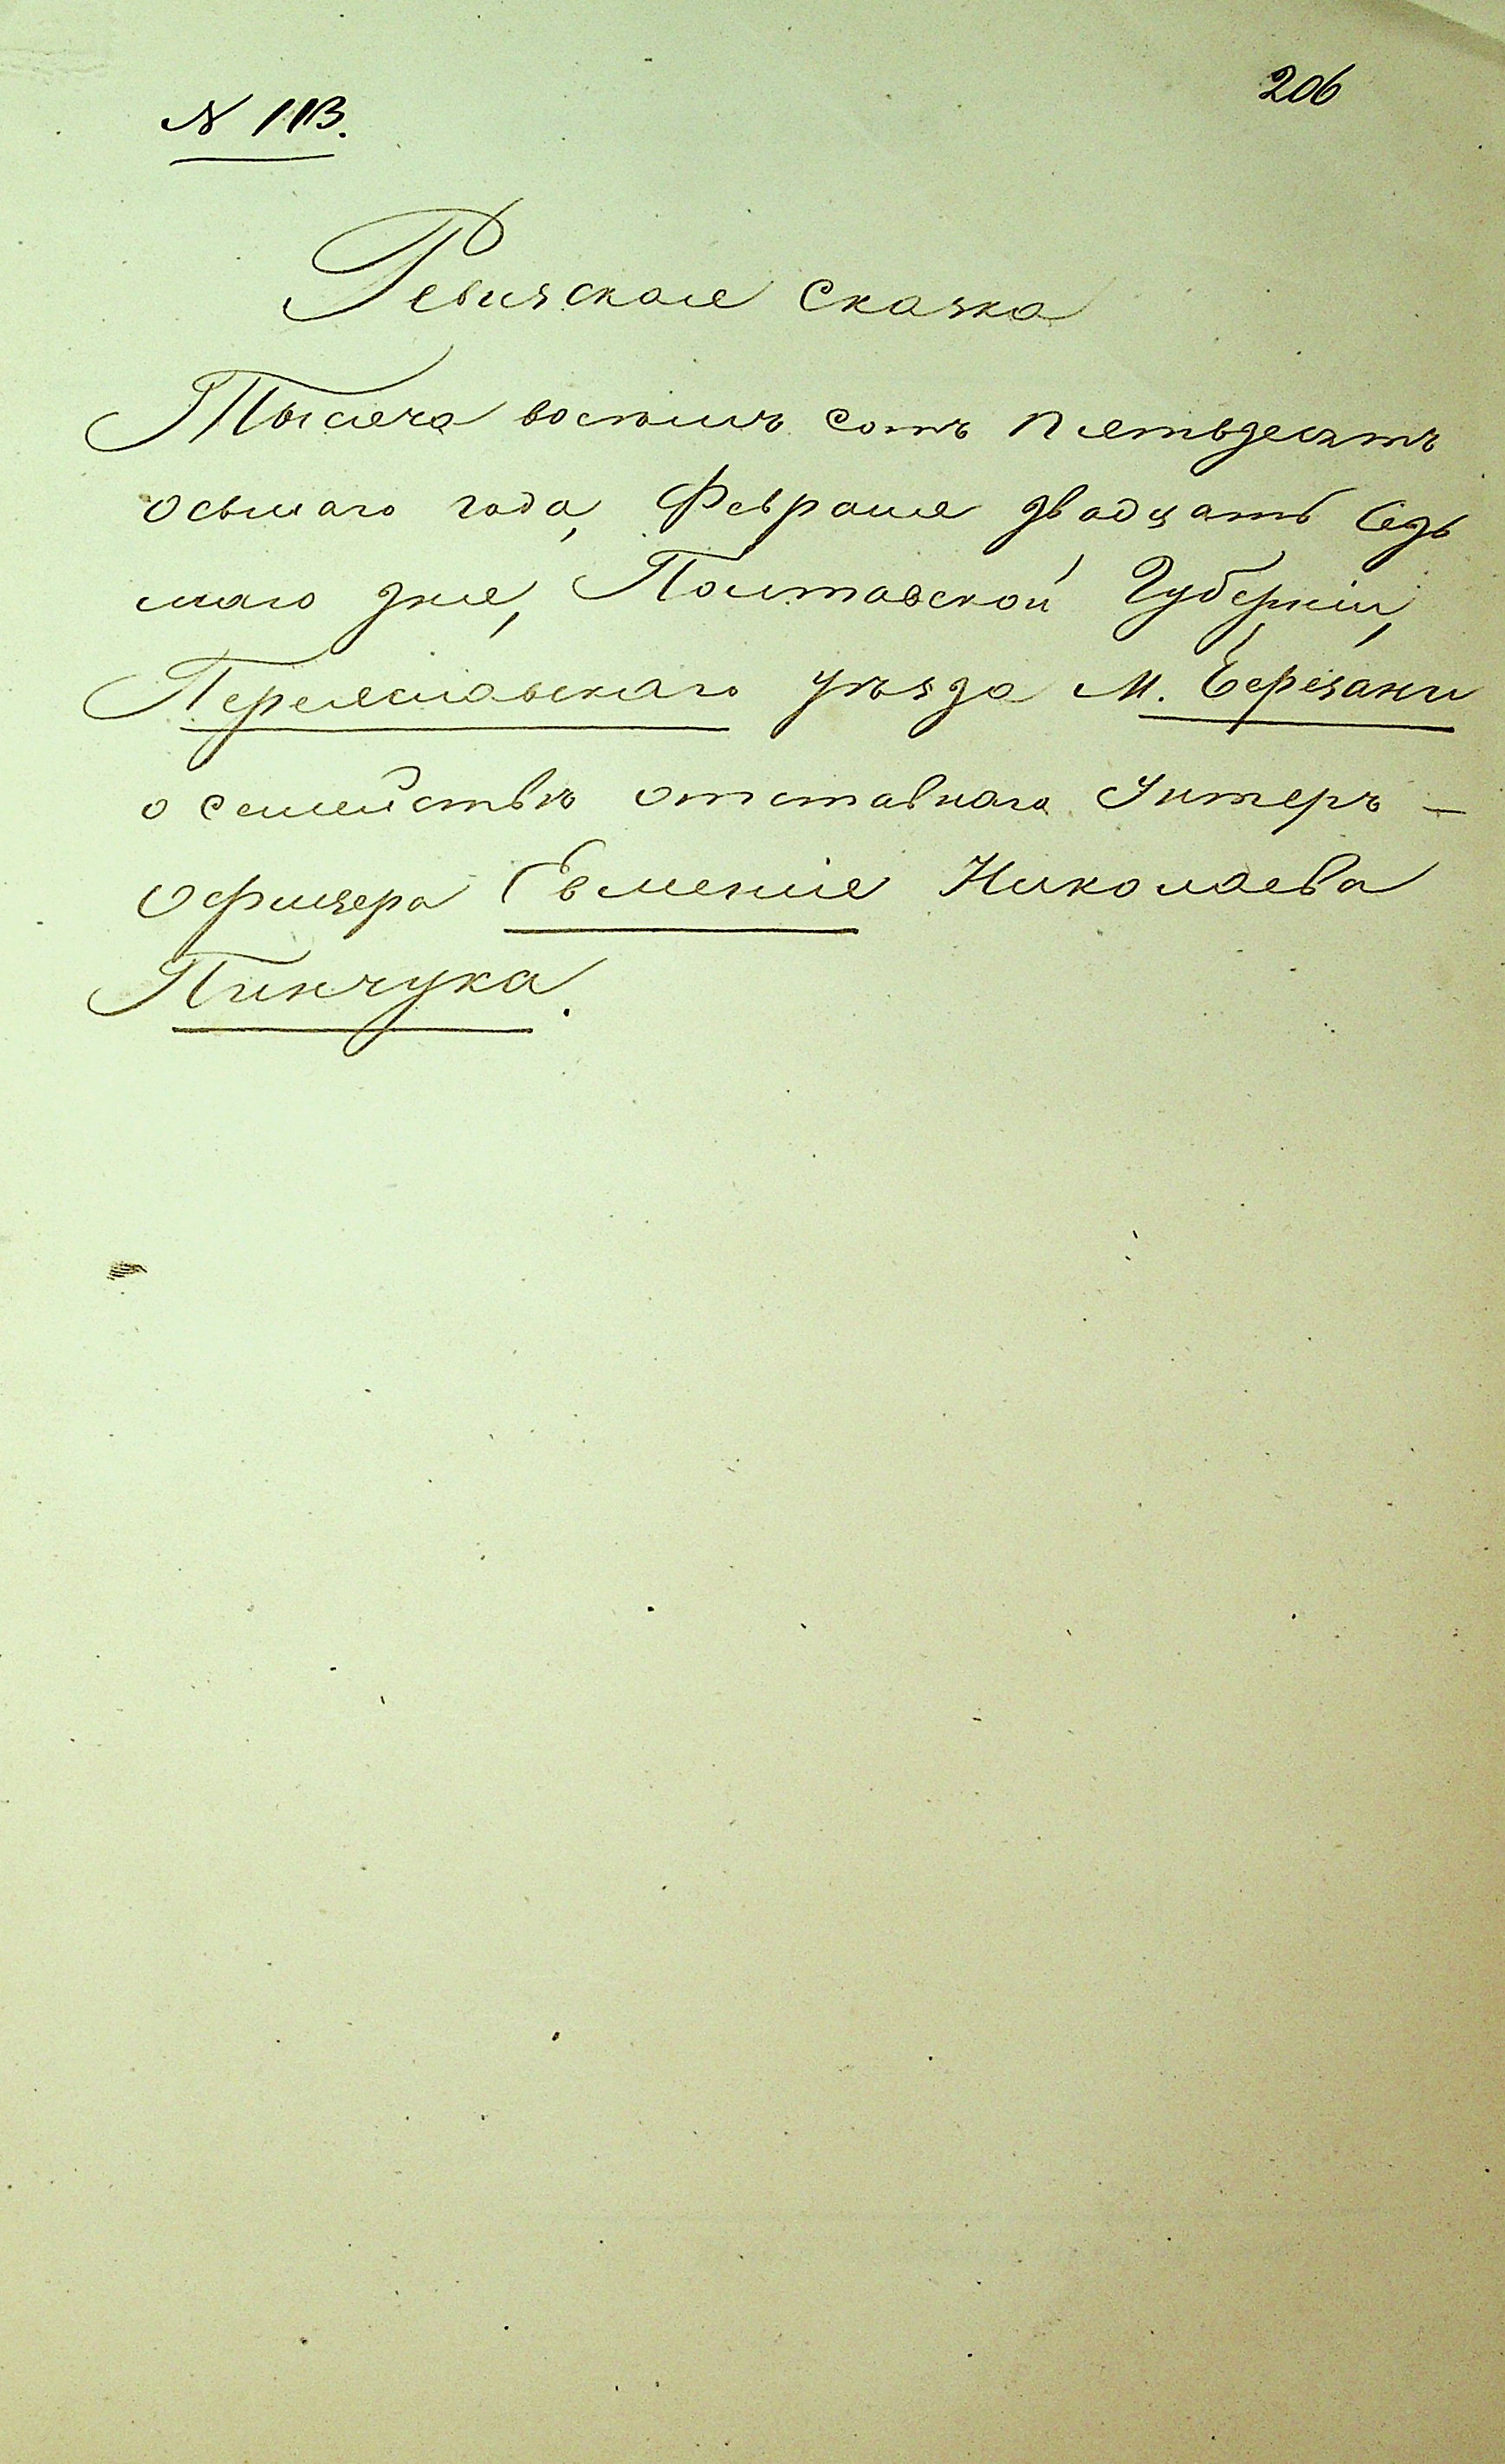 206
№ 113.
Ревизская сказка
Тысяча восемь сотъ пятьдесятъ
осьмаго года, Февраля двадцать седь
маго дня, Полтавской Губерніи,
Переяславскаго уѣзда М. Березани
о семействѣ отставнаго Унтеръ –
офицера Евменія Николаева
Пинчука.